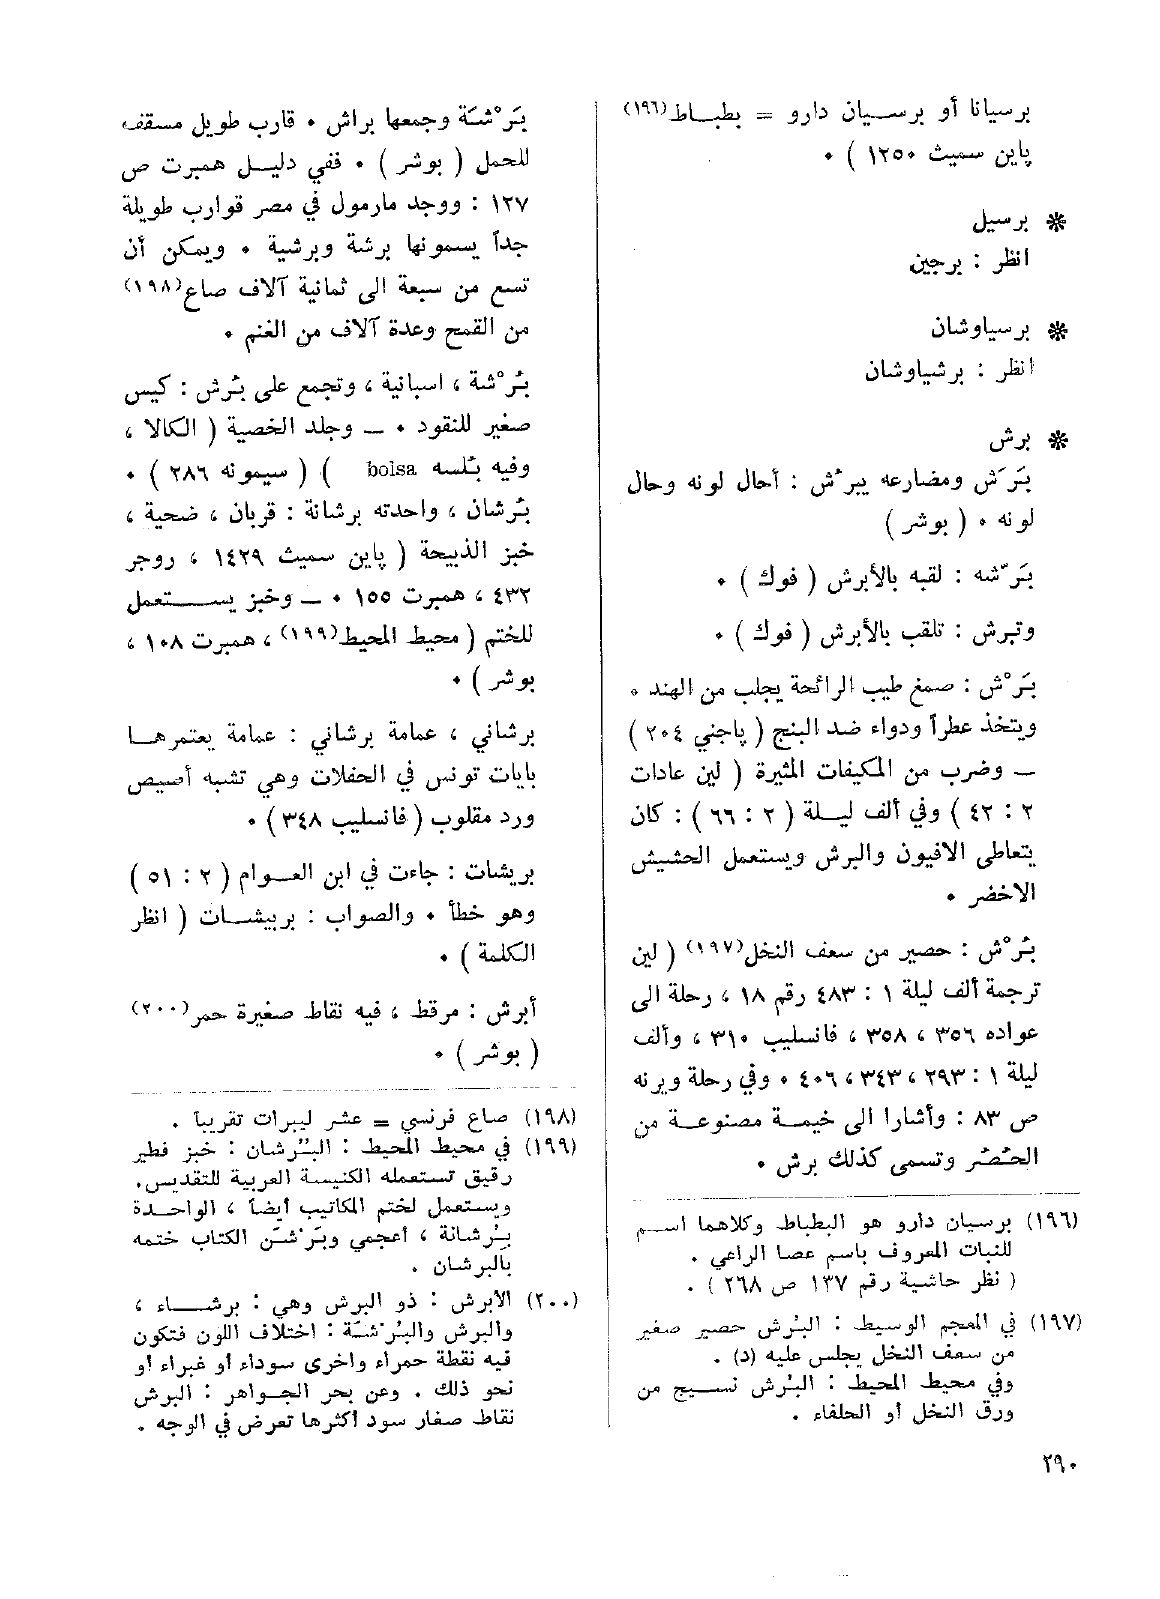 برسيانا أو برسيان دارو = بطباط(١٩٦)
پاين سميث ١٢٥٠ ) ٠
❋ برسيل
انظر : برجين
❋ برسياوشان
انظر : برشياوشان
❋ برش
بَرَش ومضارعه يبرُش : أحال لونه وحال
لونه ٠ ( بوشر )
بَرَّشه : لقبه بالأبرش ( فوك ) ٠
وتبرش : تلقب بالأبرش ( فوك ) ٠
بَرْش : صمغ طيب الرائحة يجلب من الهند ٠
ويتخذ عطرأ ودواء ضد البنج ( پاجني ٢٠٤ )
ــ وضرب من المكيفات المثيرة ( لين عادات
٢ : ٤٢ ) وفي ألف ليلة ( ٢ : ٦٦ ) : كان
يتعاطى الافيون والبرش ويستعمل الحشيش
الاخضر ٠
بُرْش : حصير من سعف النخل(١٩٧) ( لين
ترجمة ألف ليلة ١ : ٤٨٣ رقم ١٨ ، رحلة الى
عواده ٣٥٦ ، ٣٥٨ ، فانسليب ٣١٠ ، وألف
ليلة ١ : ٢٩٣ ، ٣٤٣ ، ٤٠٦ ٠ وفي رحلة ويرنه
ص ٨٣ : وأشارا الى خيمة مصنوعة من
الحُصُر وتسمى كذلك برش ٠
(١٩٦) برسيان دارو هو البطباط وكلاهما اسم
للنبات المعروف باسم عصا الراعي .
( نظر حاشية رقم ١٣٧ ص ٢٦٨ ) .
(١٩٧) في المعجم الوسيط : البُرش حصير صغير
من سعف النخل يجلس عليه (د) .
وفي محيط المحيط : البُرش نسيج من
ورق النخل أو الحلفاء .
بَرْشَة وجمعها براش ٠ قارب طويل مسقف
للحمل ( بوشر ) ٠ ففي دليل همبرت ص
١٢٧ : ووجد مارمول في مصر قوارب طويلة
جداً يسمونها برشة وبرشية ٠ ويمكن أن
تسع من سبعة الى ثمانية آلاف صاع(١٩٨)
من القمح وعدة آلاف من الغنم ٠
بُرْشة ، اسبانية ، وتجمع على بُرش : كيس
صغير للنقود ٠ ــ وجلد الخصية ( الكالا ،
وفيه بُلسه bolsa ) ( سيمونه ٢٨٦ ) ٠
بُرشان ، واحدته برشانة : قربان ، ضحية ،
خبز الذبيحة ( پاين سميث ١٤٢٩ ، روجر
٤٣٢ ، همبرت ١٥٥ ٠ ــ وخبز يستعمل
للختم ( محيط المحيط(١٩٩) ، همبرت ١٠٨ ،
بوشر ) ٠
برشاني ، عمامة برشاني : عمامة يعتمرها
بايات تونس في الحفلات وهي تشبه أصيص
ورد مقلوب ( فانسليب ٣٤٨ ) ٠
بريشات : جاءت في ابن العوام ( ٢ : ٥١ )
وهو خطأ ٠ والصواب : بربيشات ( انظر
الكلمة ) ٠
أبرش : مرقط ، فيه نقاط صغيرة حمر(٢٠٠)
( بوشر ) ٠
(١٩٨) صاع فرنسي = عشر ليبرات تقريباً .
(١٩٩) في محيط المحيط : البُرشان : خبز فطير
رقيق تستعمله الكنيسة العربية للتقديس.
ويستعمل لختم المكاتيب أيضاً ، الواحدة
بُرشانة ، أعجمي وبَرْشَن الكتاب ختمه
بالبرشان .
(٢٠٠) الأبرش : ذو البرش وهي : برشاء ،
والبرش والبُرْشَة : اختلاف اللون فتكون
فيه نقطة حمراء واخرى سوداء أو غبراء أو
نحو ذلك . وعن بحر الجواهر : البرش
نقاط صغار سود أكثرها تعرض في الوجه .
٢٩٠